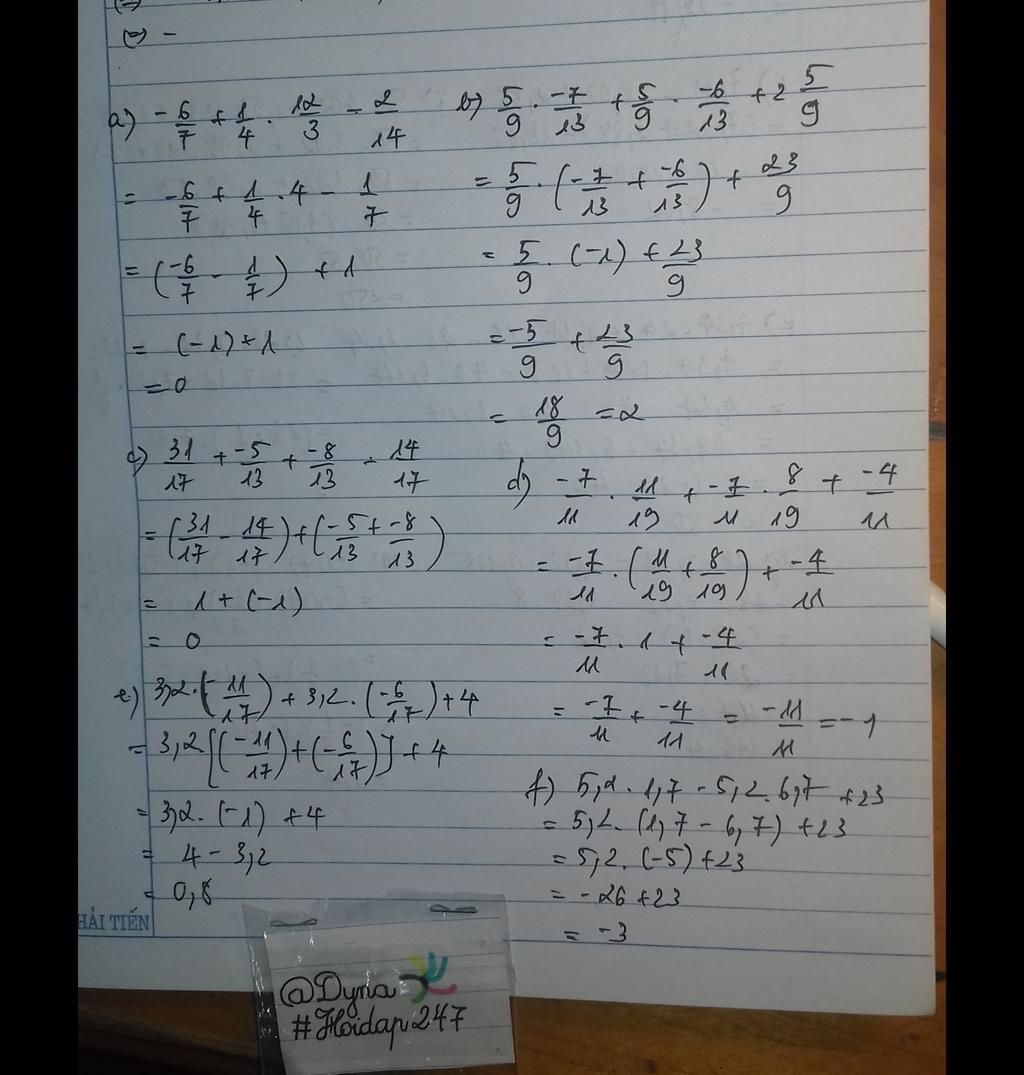 (=) -
a) -6/7 + 1/4 . 12/3 - 2/14
= -6/7 + 1/4 . 4 - 1/7
= (-6/7 - 1/7) + 1
= (-1) + 1
= 0
b) 5/9 . -7/13 + 5/9 . -6/13 + 2 5/9
= 5/9 . (-7/13 + -6/13) + 23/9
= 5/9 . (-1) + 23/9
= -5/9 + 23/9
= 18/9 = 2
c) 31/17 + -5/13 + -8/13 - 14/17
= (31/17 - 14/17) + (-5/13 + -8/13)
= 1 + (-1)
= 0
d) -7/11 . 11/19 + -7/11 . 8/19 + -4/11
= -7/11 . (11/19 + 8/19) + -4/11
= -7/11 . 1 + -4/11
= -7/11 + -4/11 = -11/11 = -1
e) 3,2 . (-11/17) + 3,2 . (-6/17) + 4
= 3,2 . [(-11/17) + (-6/17)] + 4
= 3,2 . (-1) + 4
= 4 - 3,2
= 0,8
f) 5,2 . 1,7 - 5,2 . 6,7 + 23
= 5,2 . (1,7 - 6,7) + 23
= 5,2 . (-5) + 23
= -26 + 23
= -3
HẢI TIẾN
@Dyria
#Hoidap247